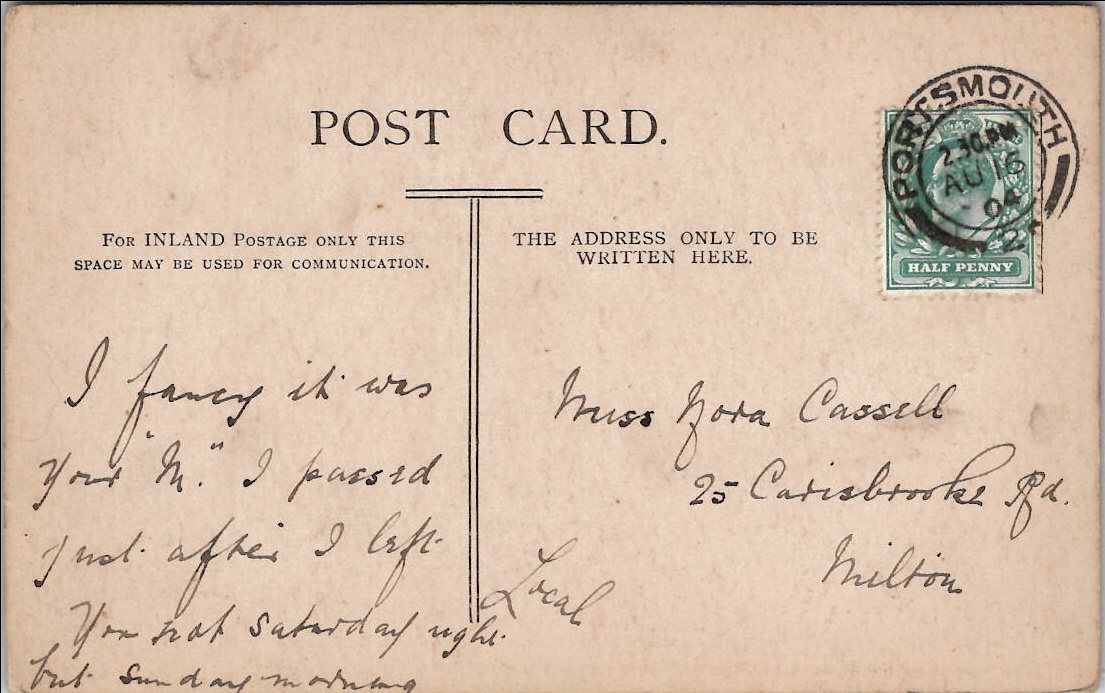 POST CARD.
FOR INLAND POSTAGE ONLY THIS
SPACE MAY BE USED FOR COMMUNICATION.
THE ADDRESS ONLY TO BE
WRITTEN HERE.
PORTSMOUTH
2.30 PM
AU 16
04
HALF PENNY
I fancy it was
your "M." I passed
just after I left
You not saturday night
but sunday morning
Miss Nora Cassell
25 Carisbrooke Rd.
Milton
Local